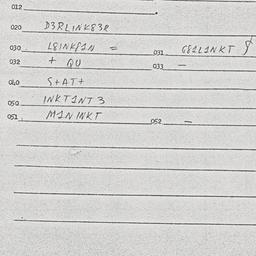 012
020 D3RLINK83R
030 L8INK81N = 031 G81L1NKT
032 + QU 033 —
040 S+AT+
050 INKT1NT3
051 M1NINKT 052 —